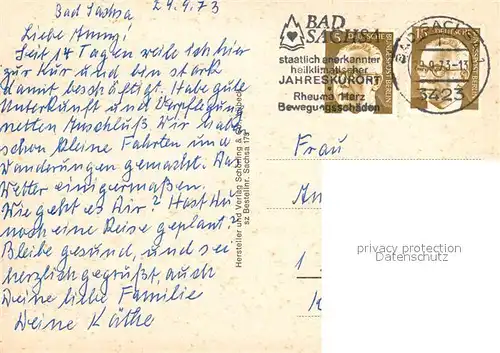 Bad Sachsa 24.9.73
Liebe Anny!
Seit 14 Tagen weile ich hier
zur Kur und bin stark
damit beschäftigt. Habe gute
Unterkunft und Verpflegung
netten Anschluß. Wir hab
schon kleine Fahrten und
Wanderungen gemacht. Das
Wetter einigermaßen.
Wie geht es Dir? Hast Du
noch eine Reise geplant?
Bleibe gesund, und sei
herzlich gegrüßt, auch
Deine liebe Familie
Deine Käthe
Hersteller und Verlag Schöning &
sz Bestellnr. Sachsa 179
BAD
SACHSA
staatlich anerkannter
heilklimatischer
JAHRESKURORT
Rheuma Herz
Bewegungsschäden
15
DEUTSCHE BUNDESPOST BERLIN
15
DEUTSCHE BUNDESPOST BERLIN
SACHSA 1
73-13
3423
Frau
An
1
privacy protection
Datenschutz